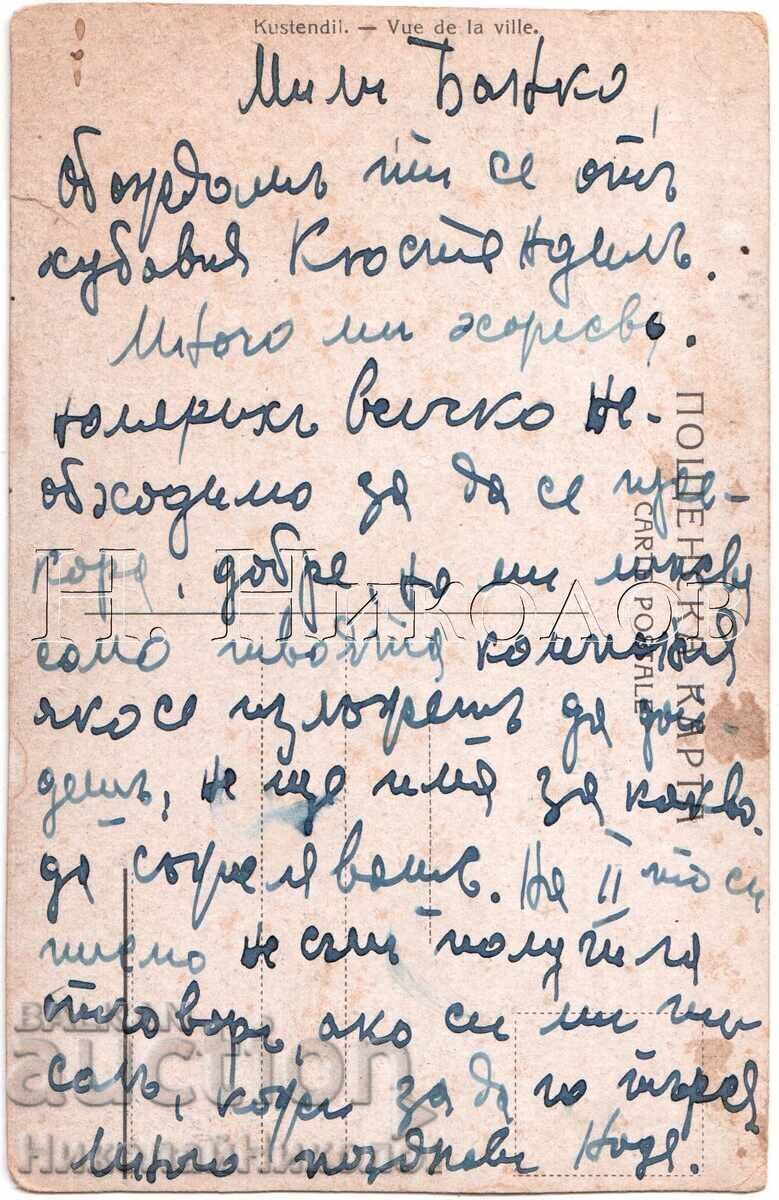 Kustendil. — Vue de la ville.
Мили Банко,
обаждамъ ти се отъ
хубавия Кюстендилъ.
Много ми харесва.
намѣрихъ всичко не-
обходимо за да се
добре, но ми липсва
само твоята компания
ако се излъжешъ да дой-
дешъ, не ще има за какво
да съжалявашъ. На II то си
писмо не съм получила
отговоръ, ако си ми пи-
салъ, кажи за да го търся
Много поздрави Надя.
ПОЩЕНСКА КАРТА
CARTE POSTALE
Н. Николов
BALKAN
auction
Николай Николов